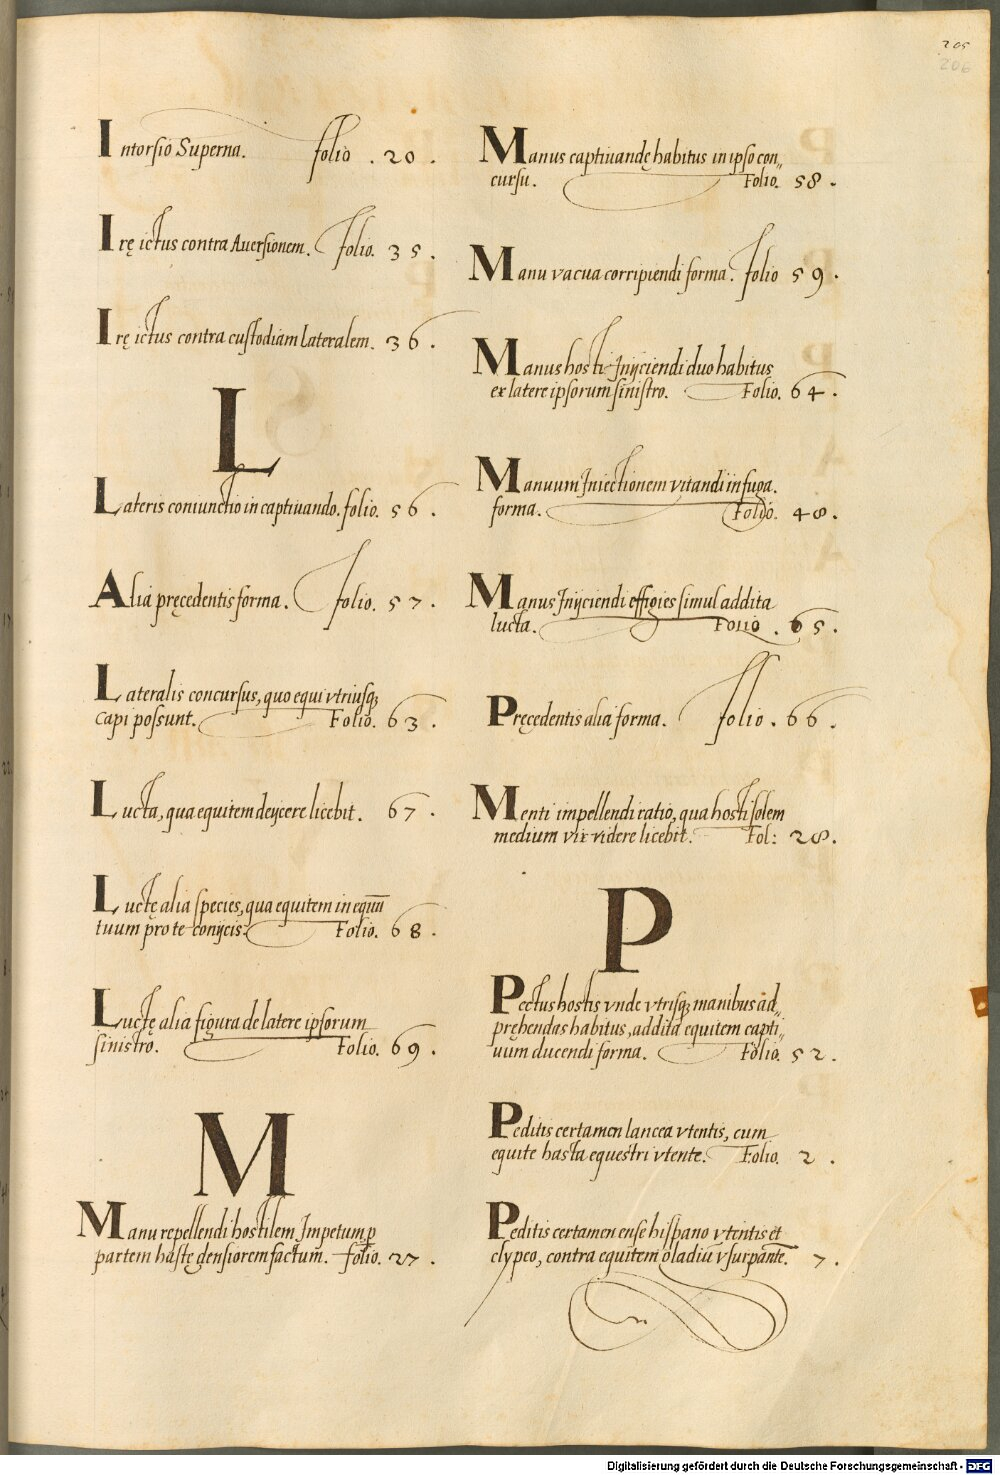 205
206
Intorsio Superna. folio . 20 .
Irę ictus contra Auersionem. folio. 35 .
Irę ictus contra custodiam lateralem. 36 .
L
Lateris coniunctio in captiuando. folio. 56 .
Alia pręcedentis forma. folio. 57 .
Lateralis concursus, quo equi vtriusq;
capi possunt. Folio. 63 .
Lucta, qua equitem deijcere licebit. 67 .
Luctę alia species, qua equitem in equũ
tuum pro te conijcis. Folio. 68 .
Luctę alia figura de latere ipsorum
sinistro. Folio. 69 .
M
Manu repellendi hostilem Impetum p̱
partem hastę densiorem factum. folio. 27 .
Manus captiuandę habitus in ipso con„
cursu. Folio. 58 .
Manu vacua corripiendi forma. folio 59 .
Manus hosti Inijciendi duo habitus
ex latere ipsorum sinistro. Folio. 64 .
Manuum Iniectionem vitandi in fuga.
forma. Folio. 48 .
Manus Inijciendi effigies simul addita
lucta. Folio . 65 .
Pręcedentis alia forma. folio . 66 .
Menti impellendi ratio, qua hosti solem
medium vix videre licebit. Fol: 28 .
P
Pectus hostis vnde vtrisq; manibus ad„
pręhendas habitus, addita equitem capti„
uum ducendi forma. Folio. 52 .
Peditis certamen lancea vtentis, cum
equite hasta equestri vtente. Folio. 2 .
Peditis certamen ense hispano vtentis et
clypeo, contra equitem gladiũ vsurpantẽ. 7 .
Digitalisierung gefördert durch die Deutsche Forschungsgemeinschaft - DFG